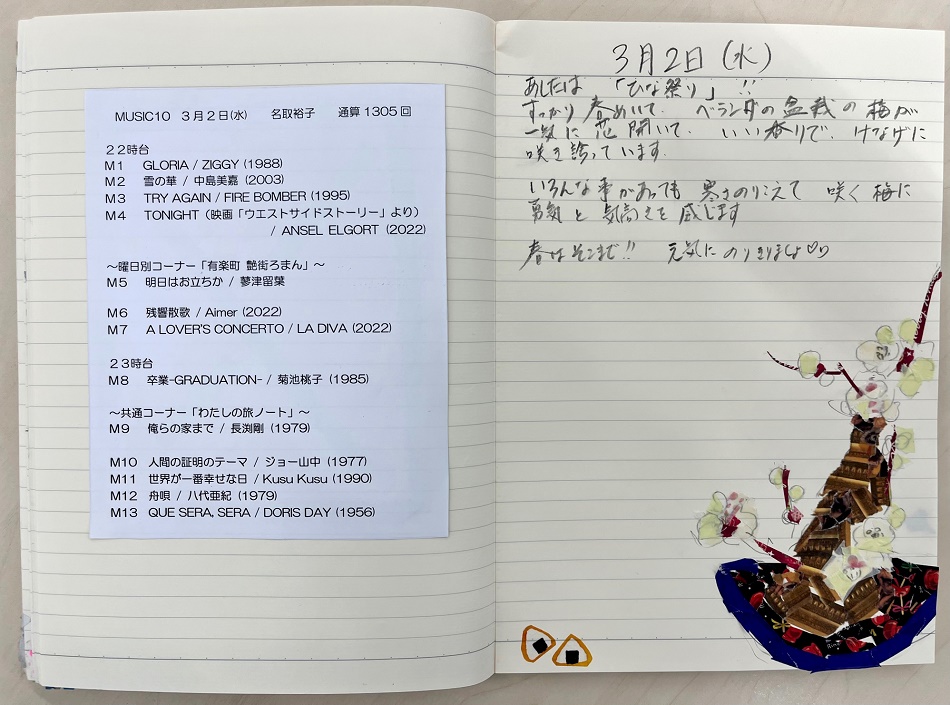 MUSIC10　３月２日(水)　名取裕子　通算1305回
２２時台
M1　GLORIA / ZIGGY (1988)
M2　雪の華 / 中島美嘉 (2003)
M3　TRY AGAIN / FIRE BOMBER (1995)
M4　TONIGHT（映画「ウエストサイドストーリー」より）
/ ANSEL ELGORT (2022)
～曜日別コーナー「有楽町 艶街ろまん」～
M5　明日はお立ちか / 夢津留葉
M6　残響散歌 / Aimer (2022)
M7　A LOVER'S CONCERTO / LA DIVA (2022)
２３時台
M8　卒業-GRADUATION- / 菊池桃子 (1985)
～共通コーナー「わたしの旅ノート」～
M9　俺らの家まで / 長渕剛 (1979)
M10　人間の証明のテーマ / ジョー山中 (1977)
M11　世界が一番幸せな日 / Kusu Kusu (1990)
M12　舟唄 / 八代亜紀 (1979)
M13　QUE SERA, SERA / DORIS DAY (1956)
3月2日（水）
あしたは　「ひな祭り」!!
すっかり 春めいて、ベランダの盆栽の梅が
一気に 花開いて、いい香りで、けなげに
咲き誇っています.
いろんな事があっても 寒さのりこえて 咲く梅に
勇気と 気高さを 感じます
春はそこまで!!　元気に のりきりましょ♡♡